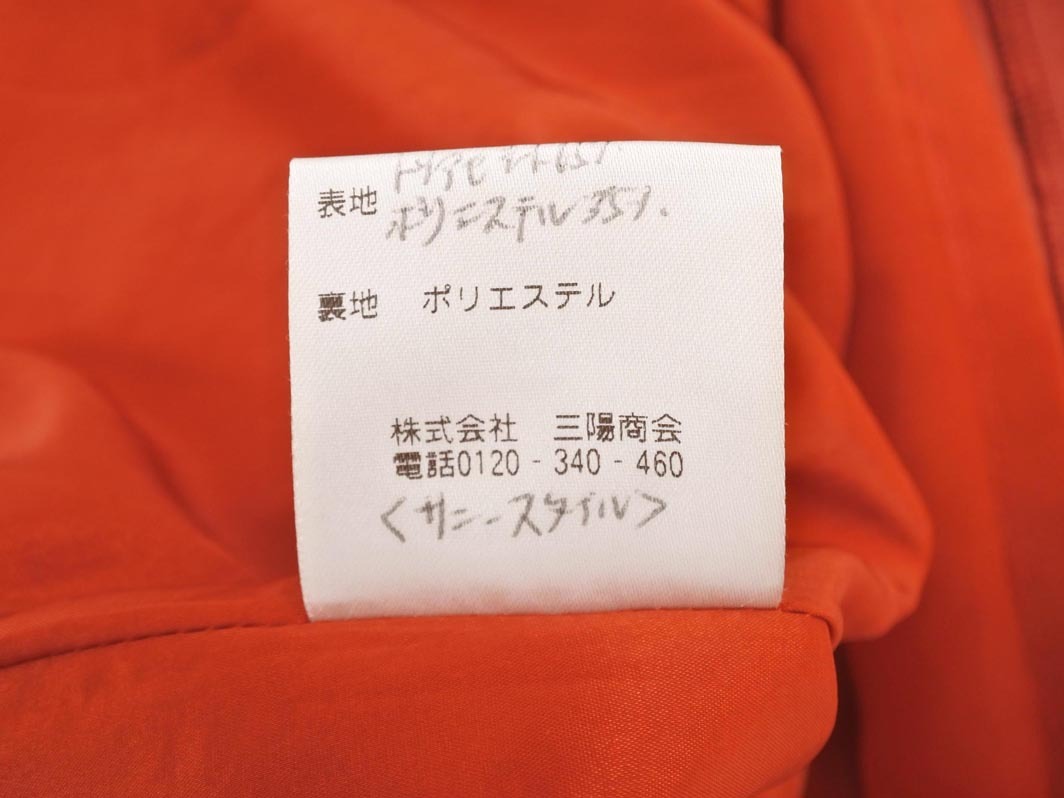 トリアセテート65%
表地 ポリエステル35%.
裏地 ポリエステル
株式会社 三陽商会
電話0120-340-460
<サニースタイル>